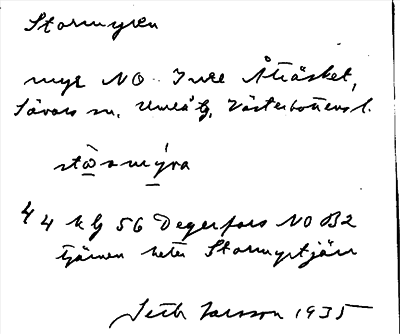 Stormyren
myr NO Inre Åträsket,
Sävars sn, Umeå tg, Västerbottens l.
stòrmýra
44 klj 56 Degerfors NO B2
tjärnen heter Stormyrtjärn
Seth Larsson 1935